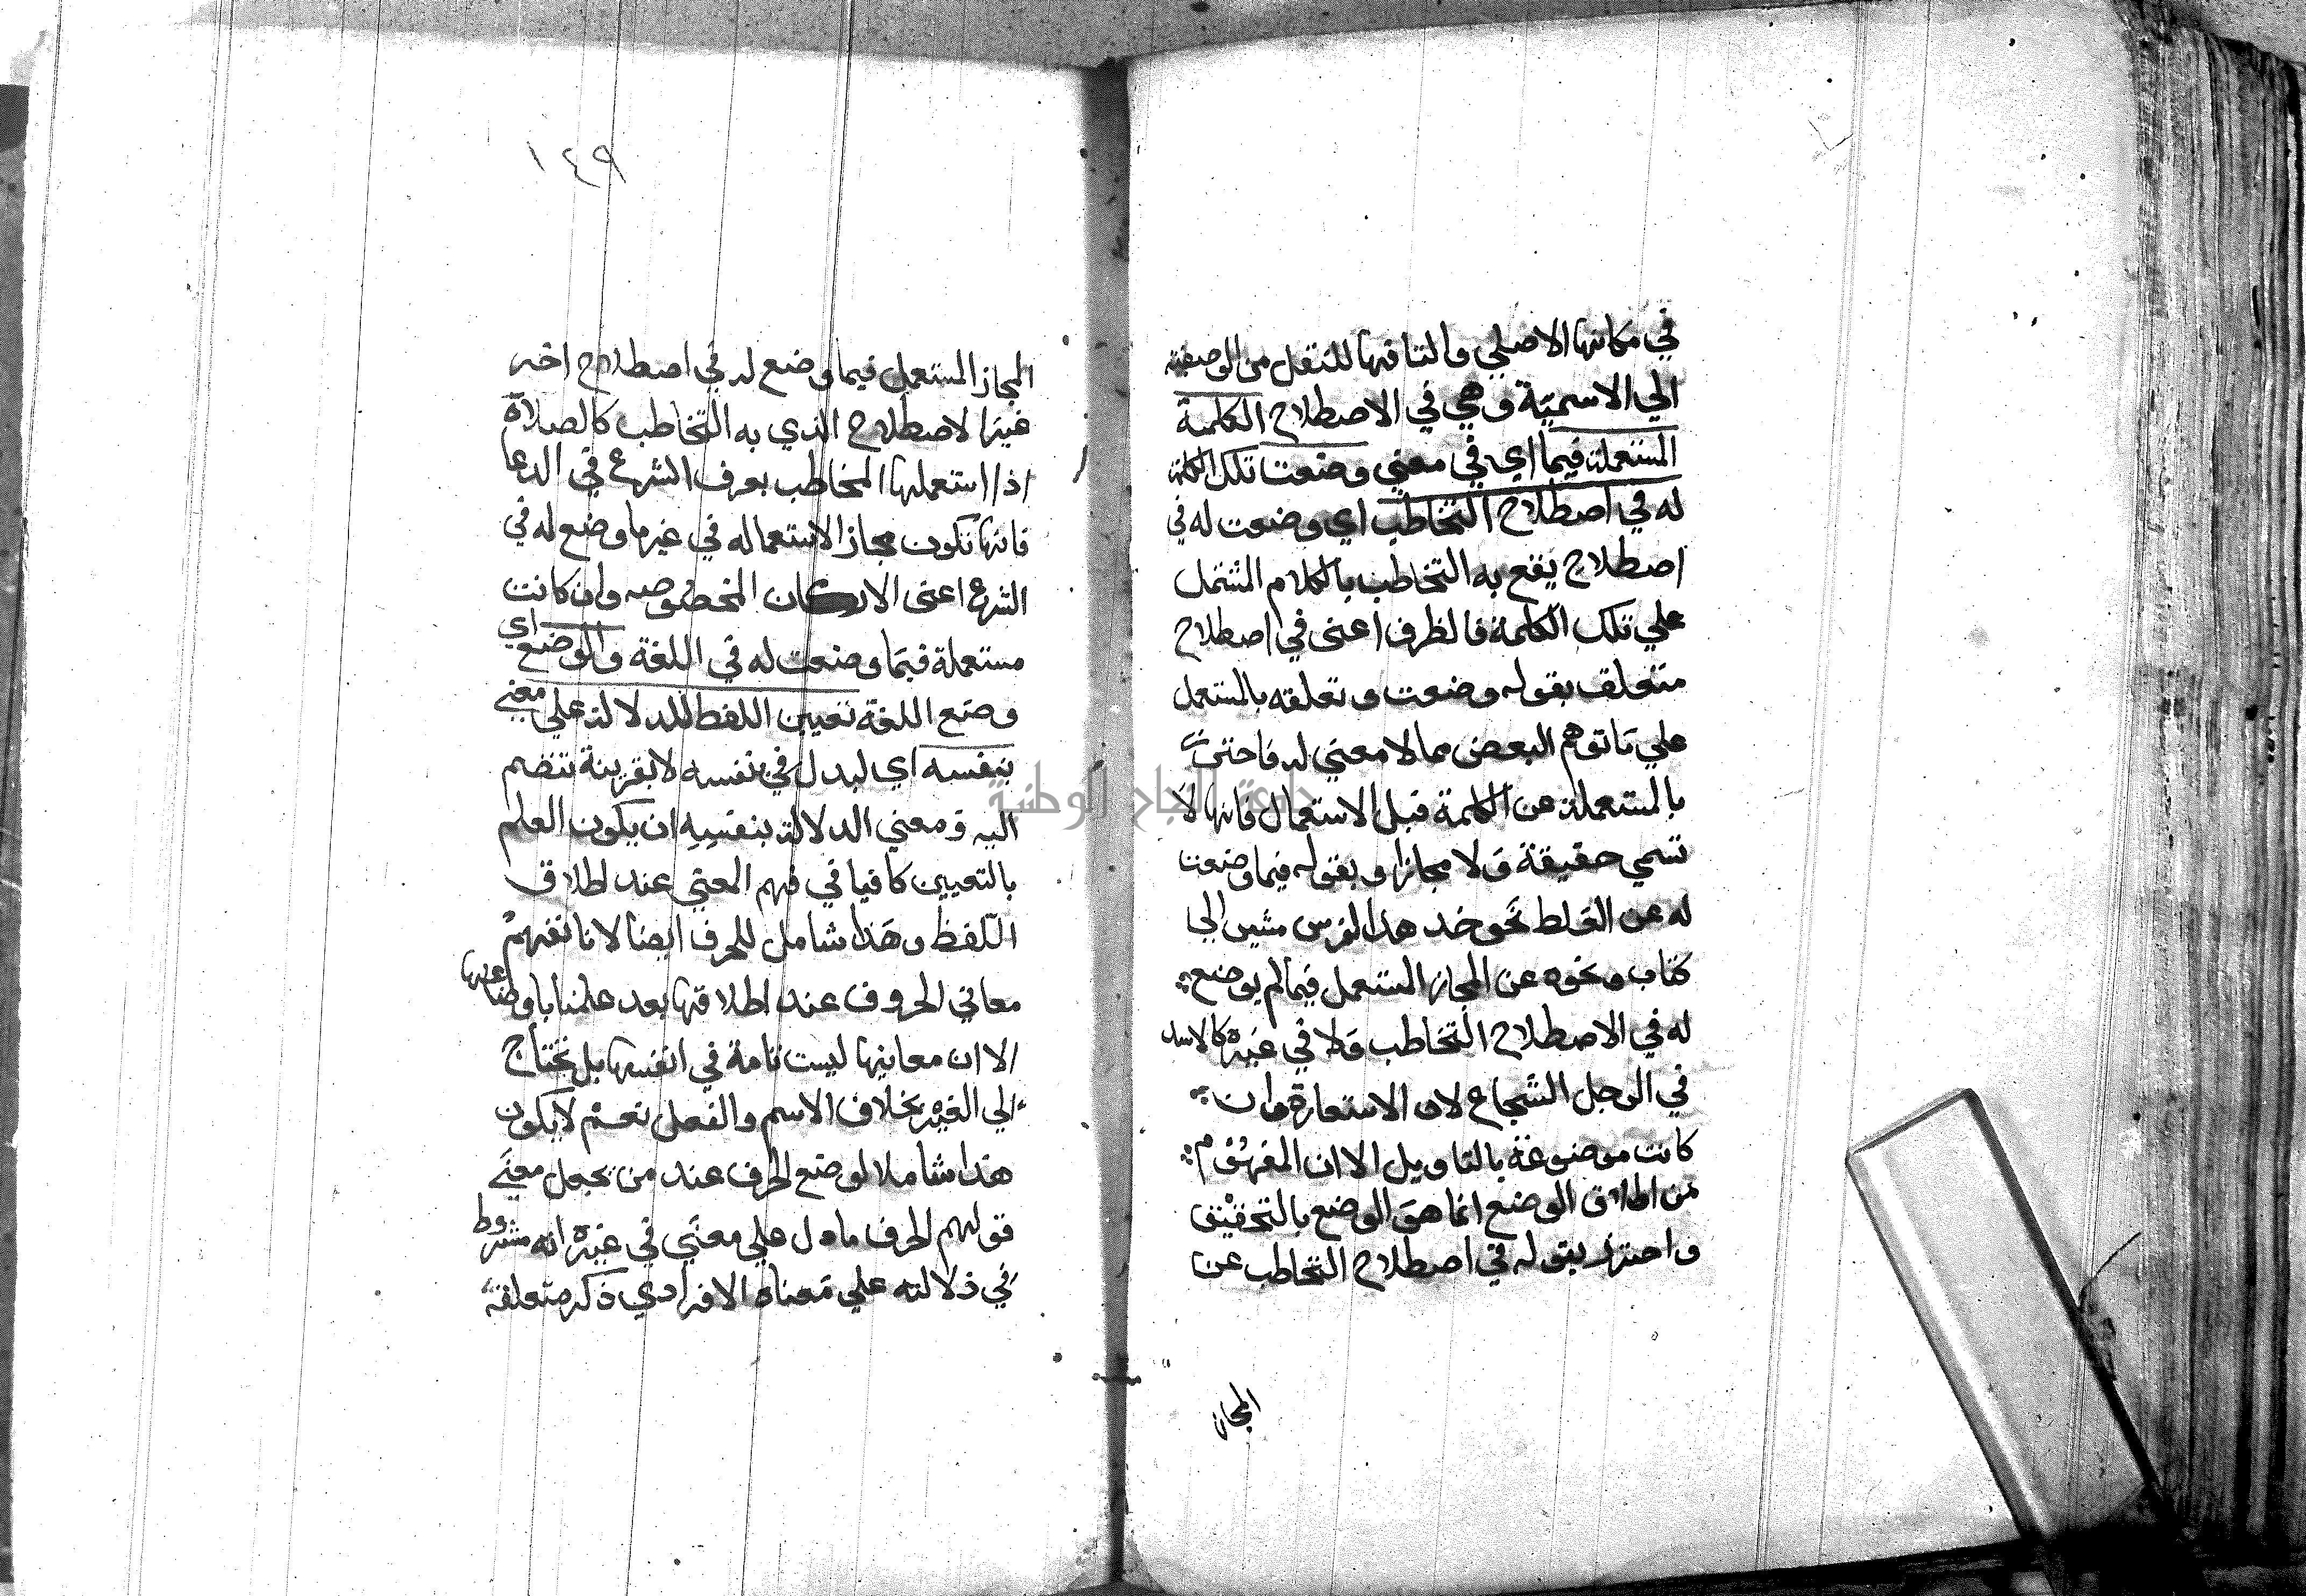 في مكانها الاصلي والتا فيها للنقل من الوصفية
الي الاسمية وهي في الاصطلاح الكلمة
المستعملة فيما اي في معني وضعت تلك الكلمة
له في اصطلاح التخاطب اي وضعت له في
اصطلاح يقع به التخاطب بالكلام المشتمل
علي تلك الكلمة فالظرف اعنى في اصطلاح
متعلق بقوله وضعت و تعلقه بالمستعمل
علي ما توهم البعض مما لا معني له فاحترز
بالمستعملة عن الكلمة قبل الاستعمال فانها لا
تسمي حقيقة ولا مجازا وبقوله فيما وضعت
له عن الغلط نحو خد هذا الفرس مشيرا الي
كتاب ونحوه عن المجاز المستعمل فيما لم يوضع
له في الاصطلاح التخاطب ولا في غيره كالاسد
في الرجل الشجاع لان الاستعارة وان
كانت موضوعة بالتاويل الا ان المفهوم
من اطلاق الوضع انما هو الوضع بالتحقيق
واحترز بقوله في اصطلاح التخاطب عن
المجاز
١٤٩
المجاز المستعمل فيما وضع له في اصطلاح اخر
غير الاصطلاح الذي به التخاطب كالصلاة
اذا استعملها المخاطب بعرف الشرع في الدعا
فانها تكون مجاز الاستعماله في غير ما وضع له في
الشرع اعنى الاركان المخصوصه وان كانت
مستعملة فيما وضعت له في اللغة والوضع اي
وضع اللغة تعيين اللفظ للدلالة علي معني
بنفسه اي ليدل في نفسه لا بقرينة تنضم
اليه ومعني الدلالة بنفسه ان يكون العلم
بالتعيين كافيا في فهم المعني عند اطلاق
اللفظ وهذا شامل للحرف ايضا لانا نفهم
معاني الحروف عند اطلاقها بعد علمنا باوضاعها
الا ان معانيها ليست تامة في انفسها بل تحتاج
الي الغير بخلاف الاسم والفعل نعم لا يكون
هذا شاملا لوضع الحرف عند من يجعل معني
قولهم الحرف ما دل علي معني في غيره انه مشروط
في دلالته علي معناه الافرادي ذكر متعلقه
جامعة النجاح الوطنية